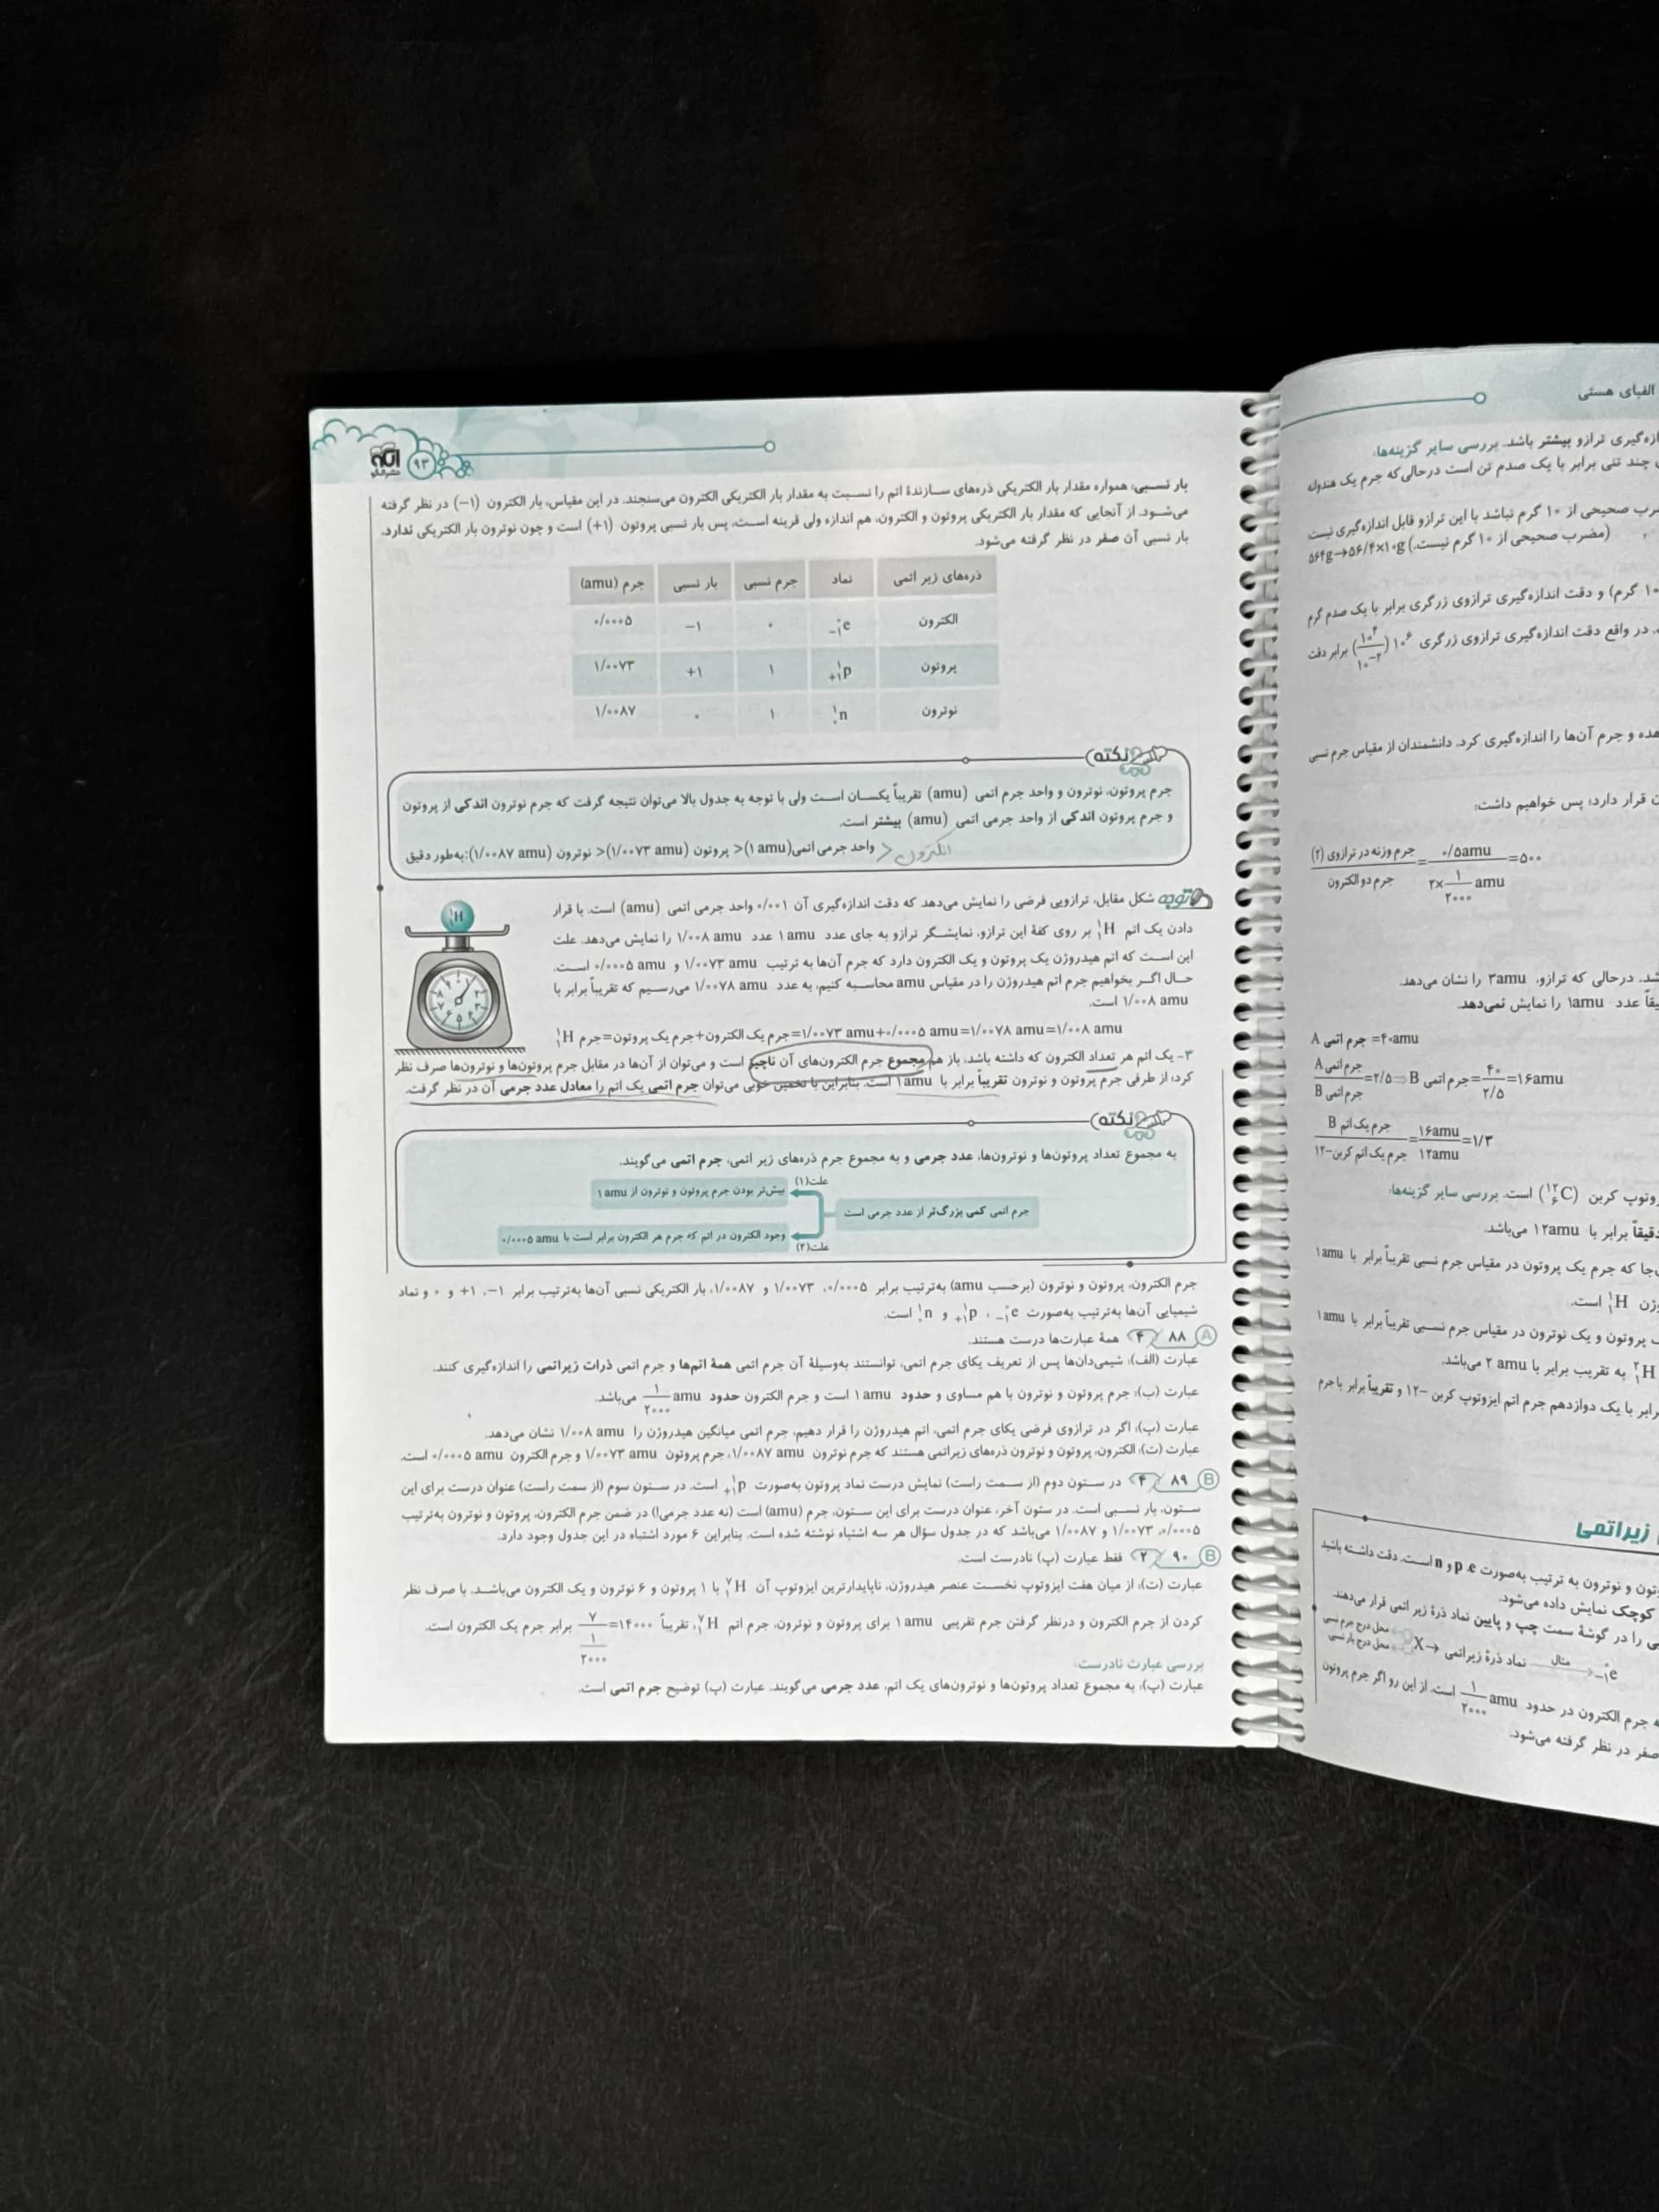 ۹۳
نشر الگو
بار نسبی: همواره مقدار بار الکتریکی ذره‌های سازندهٔ اتم را نسبت به مقدار بار الکتریکی الکترون می‌سنجند. در این مقیاس، بار الکترون (۱−) در نظر گرفته
می‌شود. از آنجایی که مقدار بار الکتریکی پروتون و الکترون، هم اندازه ولی قرینه است، پس بار نسبی پروتون (۱+) است و چون نوترون بار الکتریکی ندارد،
بار نسبی آن صفر در نظر گرفته می‌شود.
ذره‌های زیر اتمی نماد جرم نسبی بار نسبی جرم (amu)
الکترون ⁰₋₁e ۰ −۱ ۰/۰۰۰۵
پروتون ¹₊₁p ۱ +۱ ۱/۰۰۷۳
نوترون ¹₀n ۱ ۰ ۱/۰۰۸۷
نکته
جرم پروتون، نوترون و واحد جرم اتمی (amu) تقریباً یکسان است ولی با توجه به جدول بالا می‌توان نتیجه گرفت که جرم نوترون اندکی از پروتون
و جرم پروتون اندکی از واحد جرمی اتمی (amu) بیشتر است.
به‌طور دقیق: (۱/۰۰۸۷ amu) نوترون > (۱/۰۰۷۳ amu) پروتون > (۱ amu) واحد جرمی اتمی > الکترون
توجه شکل مقابل، ترازویی فرضی را نمایش می‌دهد که دقت اندازه‌گیری آن ۰/۰۰۱ واحد جرمی اتمی (amu) است. با قرار
دادن یک اتم ¹₁H بر روی کفهٔ این ترازو، نمایشگر ترازو به جای عدد ۱amu عدد ۱/۰۰۸ amu را نمایش می‌دهد. علت
این است که اتم هیدروژن یک پروتون و یک الکترون دارد که جرم آن‌ها به ترتیب ۱/۰۰۷۳ amu و ۰/۰۰۰۵ amu است.
حال اگر بخواهیم جرم اتم هیدروژن را در مقیاس amu محاسبه کنیم، به عدد ۱/۰۰۷۸ amu می‌رسیم که تقریباً برابر با
۱/۰۰۸ amu است.
¹₁H جرم=جرم یک پروتون+جرم یک الکترون=۱/۰۰۷۳ amu+۰/۰۰۰۵ amu=۱/۰۰۷۸ amu=۱/۰۰۸ amu
۳- یک اتم هر تعداد الکترون که داشته باشد، باز هم مجموع جرم الکترون‌های آن ناچیز است و می‌توان از آن‌ها در مقابل جرم پروتون‌ها و نوترون‌ها صرف نظر
کرد؛ از طرفی جرم پروتون و نوترون تقریباً برابر با ۱amu است. بنابراین با تخمین خوبی می‌توان جرم اتمی یک اتم را معادل عدد جرمی آن در نظر گرفت.
نکته
به مجموع تعداد پروتون‌ها و نوترون‌ها، عدد جرمی و به مجموع جرم ذره‌های زیر اتمی، جرم اتمی می‌گویند.
جرم اتمی کمی بزرگ‌تر از عدد جرمی است
علت(۱)
بیش‌تر بودن جرم پروتون و نوترون از ۱amu
علت(۲)
وجود الکترون در اتم که جرم هر الکترون برابر است با ۰/۰۰۰۵ amu
جرم الکترون، پروتون و نوترون (برحسب amu) به‌ترتیب برابر ۰/۰۰۰۵، ۱/۰۰۷۳ و ۱/۰۰۸۷، بار الکتریکی نسبی آن‌ها به‌ترتیب برابر ۱−، ۱+ و ۰ و نماد
شیمیایی آن‌ها به‌ترتیب به‌صورت ⁰₋₁e، ¹₊₁p و ¹₀n است.
A ۸۸ ۴ همهٔ عبارت‌ها درست هستند.
عبارت (الف): شیمی‌دان‌ها پس از تعریف یکای جرم اتمی، توانستند به‌وسیلهٔ آن جرم اتمی همهٔ اتم‌ها و جرم اتمی ذرات زیراتمی را اندازه‌گیری کنند.
عبارت (ب): جرم پروتون و نوترون با هم مساوی و حدود ۱amu است و جرم الکترون حدود ۱/۲۰۰۰ amu می‌باشد.
عبارت (پ): اگر در ترازوی فرضی یکای جرم اتمی، اتم هیدروژن را قرار دهیم، جرم اتمی میانگین هیدروژن را ۱/۰۰۸ amu نشان می‌دهد.
عبارت (ت): الکترون، پروتون و نوترون ذره‌های زیراتمی هستند که جرم نوترون ۱/۰۰۸۷ amu، جرم پروتون ۱/۰۰۷۳ amu و جرم الکترون ۰/۰۰۰۵ amu است.
B ۸۹ ۴ در ستون دوم (از سمت راست) نمایش درست نماد پروتون به‌صورت ¹₊₁p است. در ستون سوم (از سمت راست) عنوان درست برای این
ستون، بار نسبی است. در ستون آخر، عنوان درست برای این ستون، جرم (amu) است (نه عدد جرمی!) در ضمن جرم الکترون، پروتون و نوترون به‌ترتیب
۰/۰۰۰۵، ۱/۰۰۷۳ و ۱/۰۰۸۷ می‌باشد که در جدول سؤال هر سه اشتباه نوشته شده است. بنابراین ۶ مورد اشتباه در این جدول وجود دارد.
B ۹۰ ۲ فقط عبارت (پ) نادرست است.
عبارت (ت): از میان هفت ایزوتوپ نخست عنصر هیدروژن، ناپایدارترین ایزوتوپ آن ⁷₁H با ۱ پروتون و ۶ نوترون و یک الکترون می‌باشد. با صرف نظر
کردن از جرم الکترون و درنظر گرفتن جرم تقریبی ۱amu برای پروتون و نوترون، جرم اتم ⁷₁H، تقریباً ۷/(۱/۲۰۰۰)=۱۴۰۰۰ برابر جرم یک الکترون است.
بررسی عبارت نادرست:
عبارت (پ): به مجموع تعداد پروتون‌ها و نوترون‌های یک اتم، عدد جرمی می‌گویند. عبارت (پ) توضیح جرم اتمی است.
الفبای هستی
ازه‌گیری ترازو بیشتر باشد. بررسی سایر گزینه‌ها:
چند تنی برابر با یک صدم تن است درحالی‌که جرم یک هندوانه
صحیحی از ۱۰ گرم نباشد با این ترازو قابل اندازه‌گیری نیست
۵۶۴g→۵۶/۴×۱۰g (مضرب صحیحی از ۱۰ گرم نیست.)
گرم) و دقت اندازه‌گیری ترازوی زرگری برابر با یک صدم گرم
در واقع دقت اندازه‌گیری ترازوی زرگری ۱۰⁶ (۱۰⁴/۱۰⁻²) برابر دقت
هده و جرم آن‌ها را اندازه‌گیری کرد. دانشمندان از مقیاس جرم نسبی
قرار دارد؛ پس خواهیم داشت:
جرم وزنه در ترازوی (۲)/جرم دو الکترون=۰/۵amu/(۲×۱/۲۰۰۰ amu)=۵۰۰
درحالی که ترازو، ۳amu را نشان می‌دهد.
عدد ۱amu را نمایش نمی‌دهد.
جرم اتمی A=۴۰amu
جرم اتمی A/جرم اتمی B=۲/۵⇒جرم اتمی B=۴۰/۲/۵=۱۶amu
جرم یک اتم B/جرم یک اتم کربن-۱۲=۱۶amu/۱۲amu=۱/۳
کربن (¹²₆C) است. بررسی سایر گزینه‌ها:
دقیقاً برابر با ۱۲amu می‌باشد.
جا که جرم یک پروتون در مقیاس جرم نسبی تقریباً برابر با ۱amu
¹₁H است.
پروتون و یک نوترون در مقیاس جرم نسبی تقریباً برابر با ۱amu
²₁H به تقریب برابر با ۲ amu می‌باشد.
برابر با یک دوازدهم جرم اتم ایزوتوپ کربن -۱۲ و تقریباً برابر با جرم
زیراتمی
و نوترون به ترتیب به‌صورت e، p و n است. دقت داشته باشید
کوچک نمایش داده می‌شود.
را در گوشهٔ سمت چپ و پایین نماد ذرهٔ زیر اتمی قرار می‌دهند.
محل درج جرم نسبی
محل درج بار نسبی
X→ نماد ذرهٔ زیراتمی مثال ⁰₋₁e
جرم الکترون در حدود ۱/۲۰۰۰ amu است. از این رو اگر جرم پروتون
صفر در نظر گرفته می‌شود.